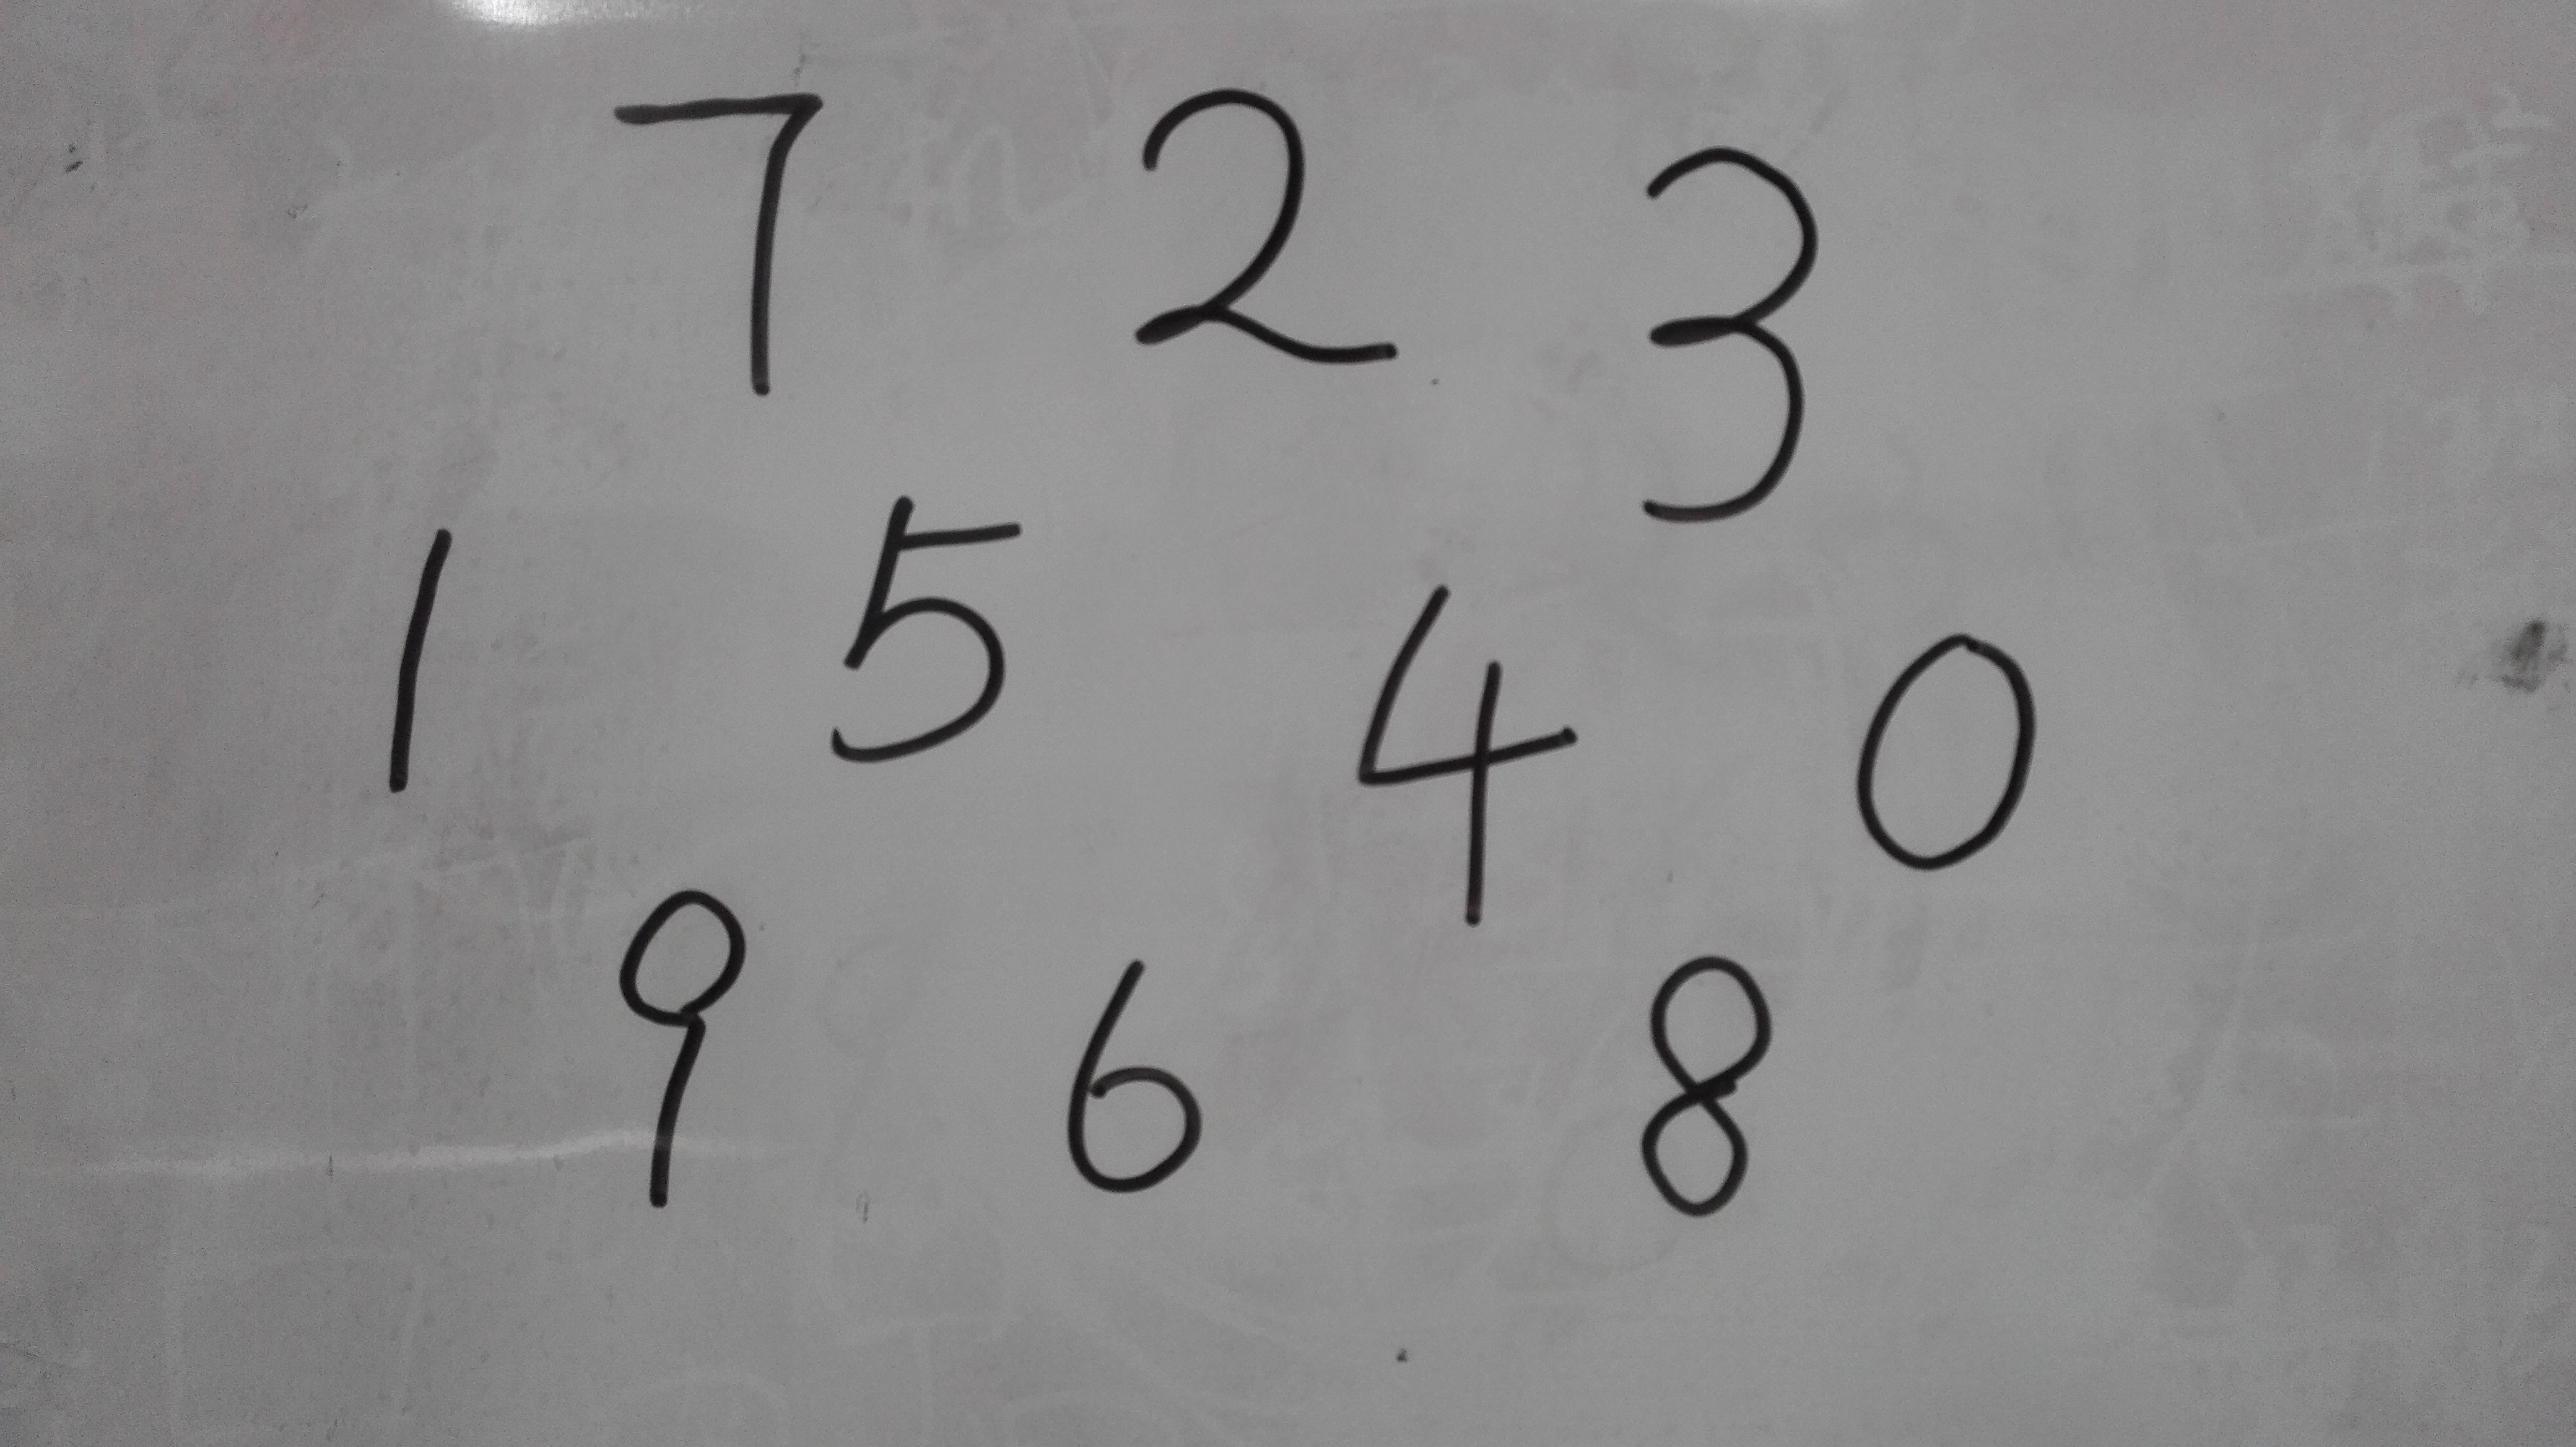 7 2 3
1 5 4 0
9 6 8